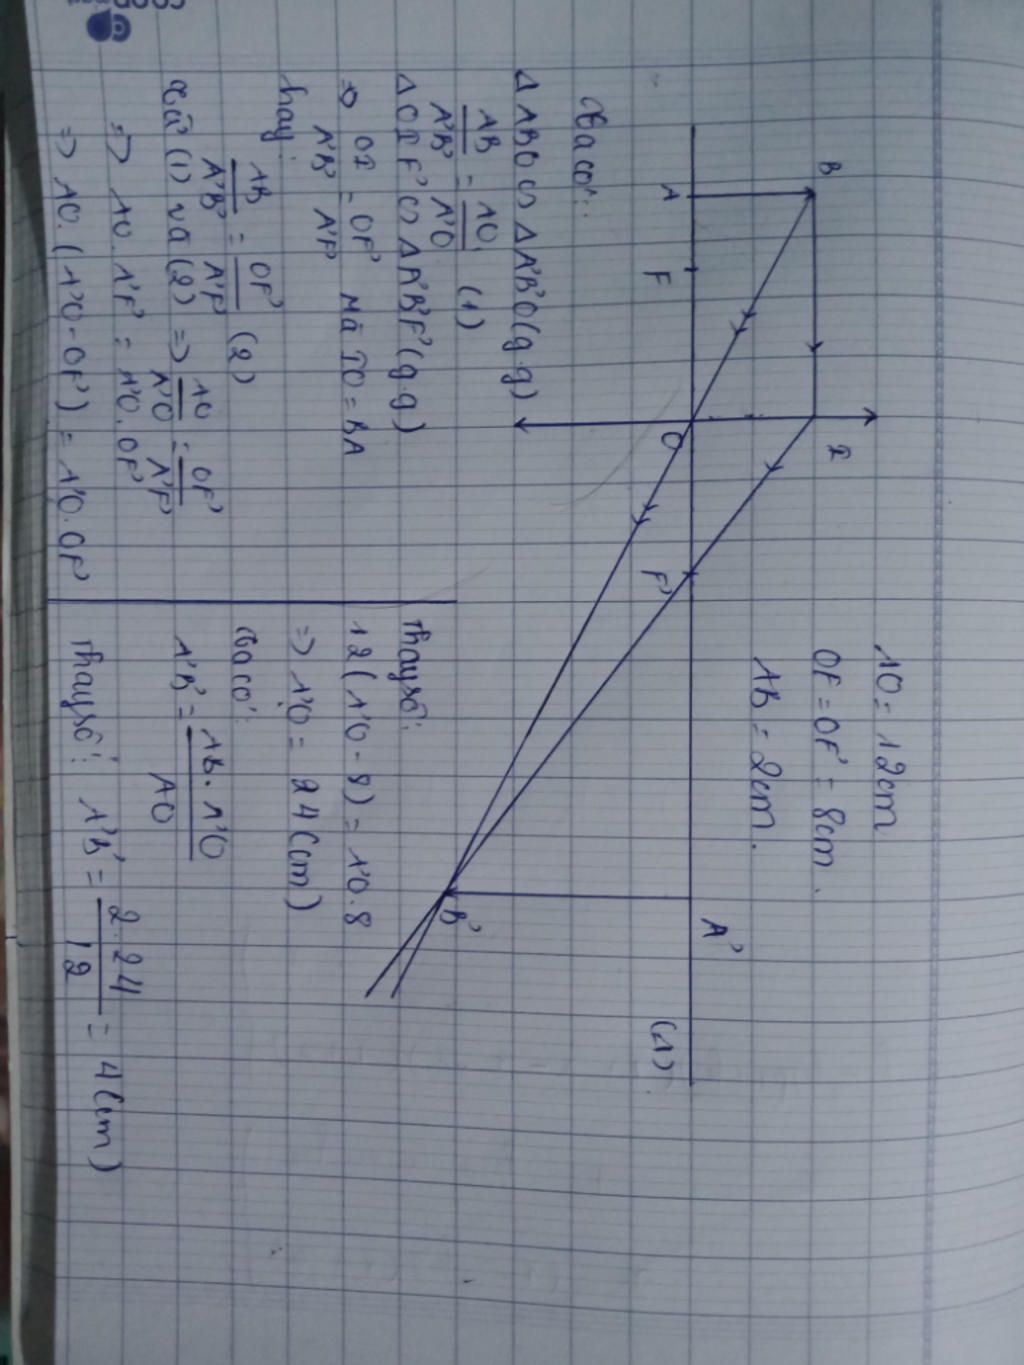 AO = 12cm
OF = OF' = 8cm.
AB = 2cm.
B
I
A
F
O
F'
A'
(Δ)
B'
Ta có:
Δ ABO ∽ Δ A'B'O (g.g)
AB/A'B' = AO/A'O (1)
Δ OIF' ∽ Δ A'B'F' (g.g)
=> OI/A'B' = OF'/A'F' Mà IO = BA
hay: AB/A'B' = OF'/A'F' (2)
Từ (1) và (2) => AO/A'O = OF'/A'F'
=> AO. A'F' = A'O. OF'
=> AO. (A'O - OF') = A'O. OF'
Thay số:
12 (A'O - 8) = A'O. 8
=> A'O = 24 (cm)
Ta có:
A'B' = AB. A'O / AO
Thay số: A'B' = 2. 24 / 12 = 4 (cm)